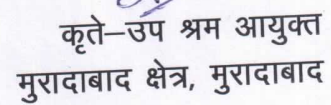 कृते–उप श्रम आयुक्त
मुरादाबाद क्षेत्र, मुरादाबाद